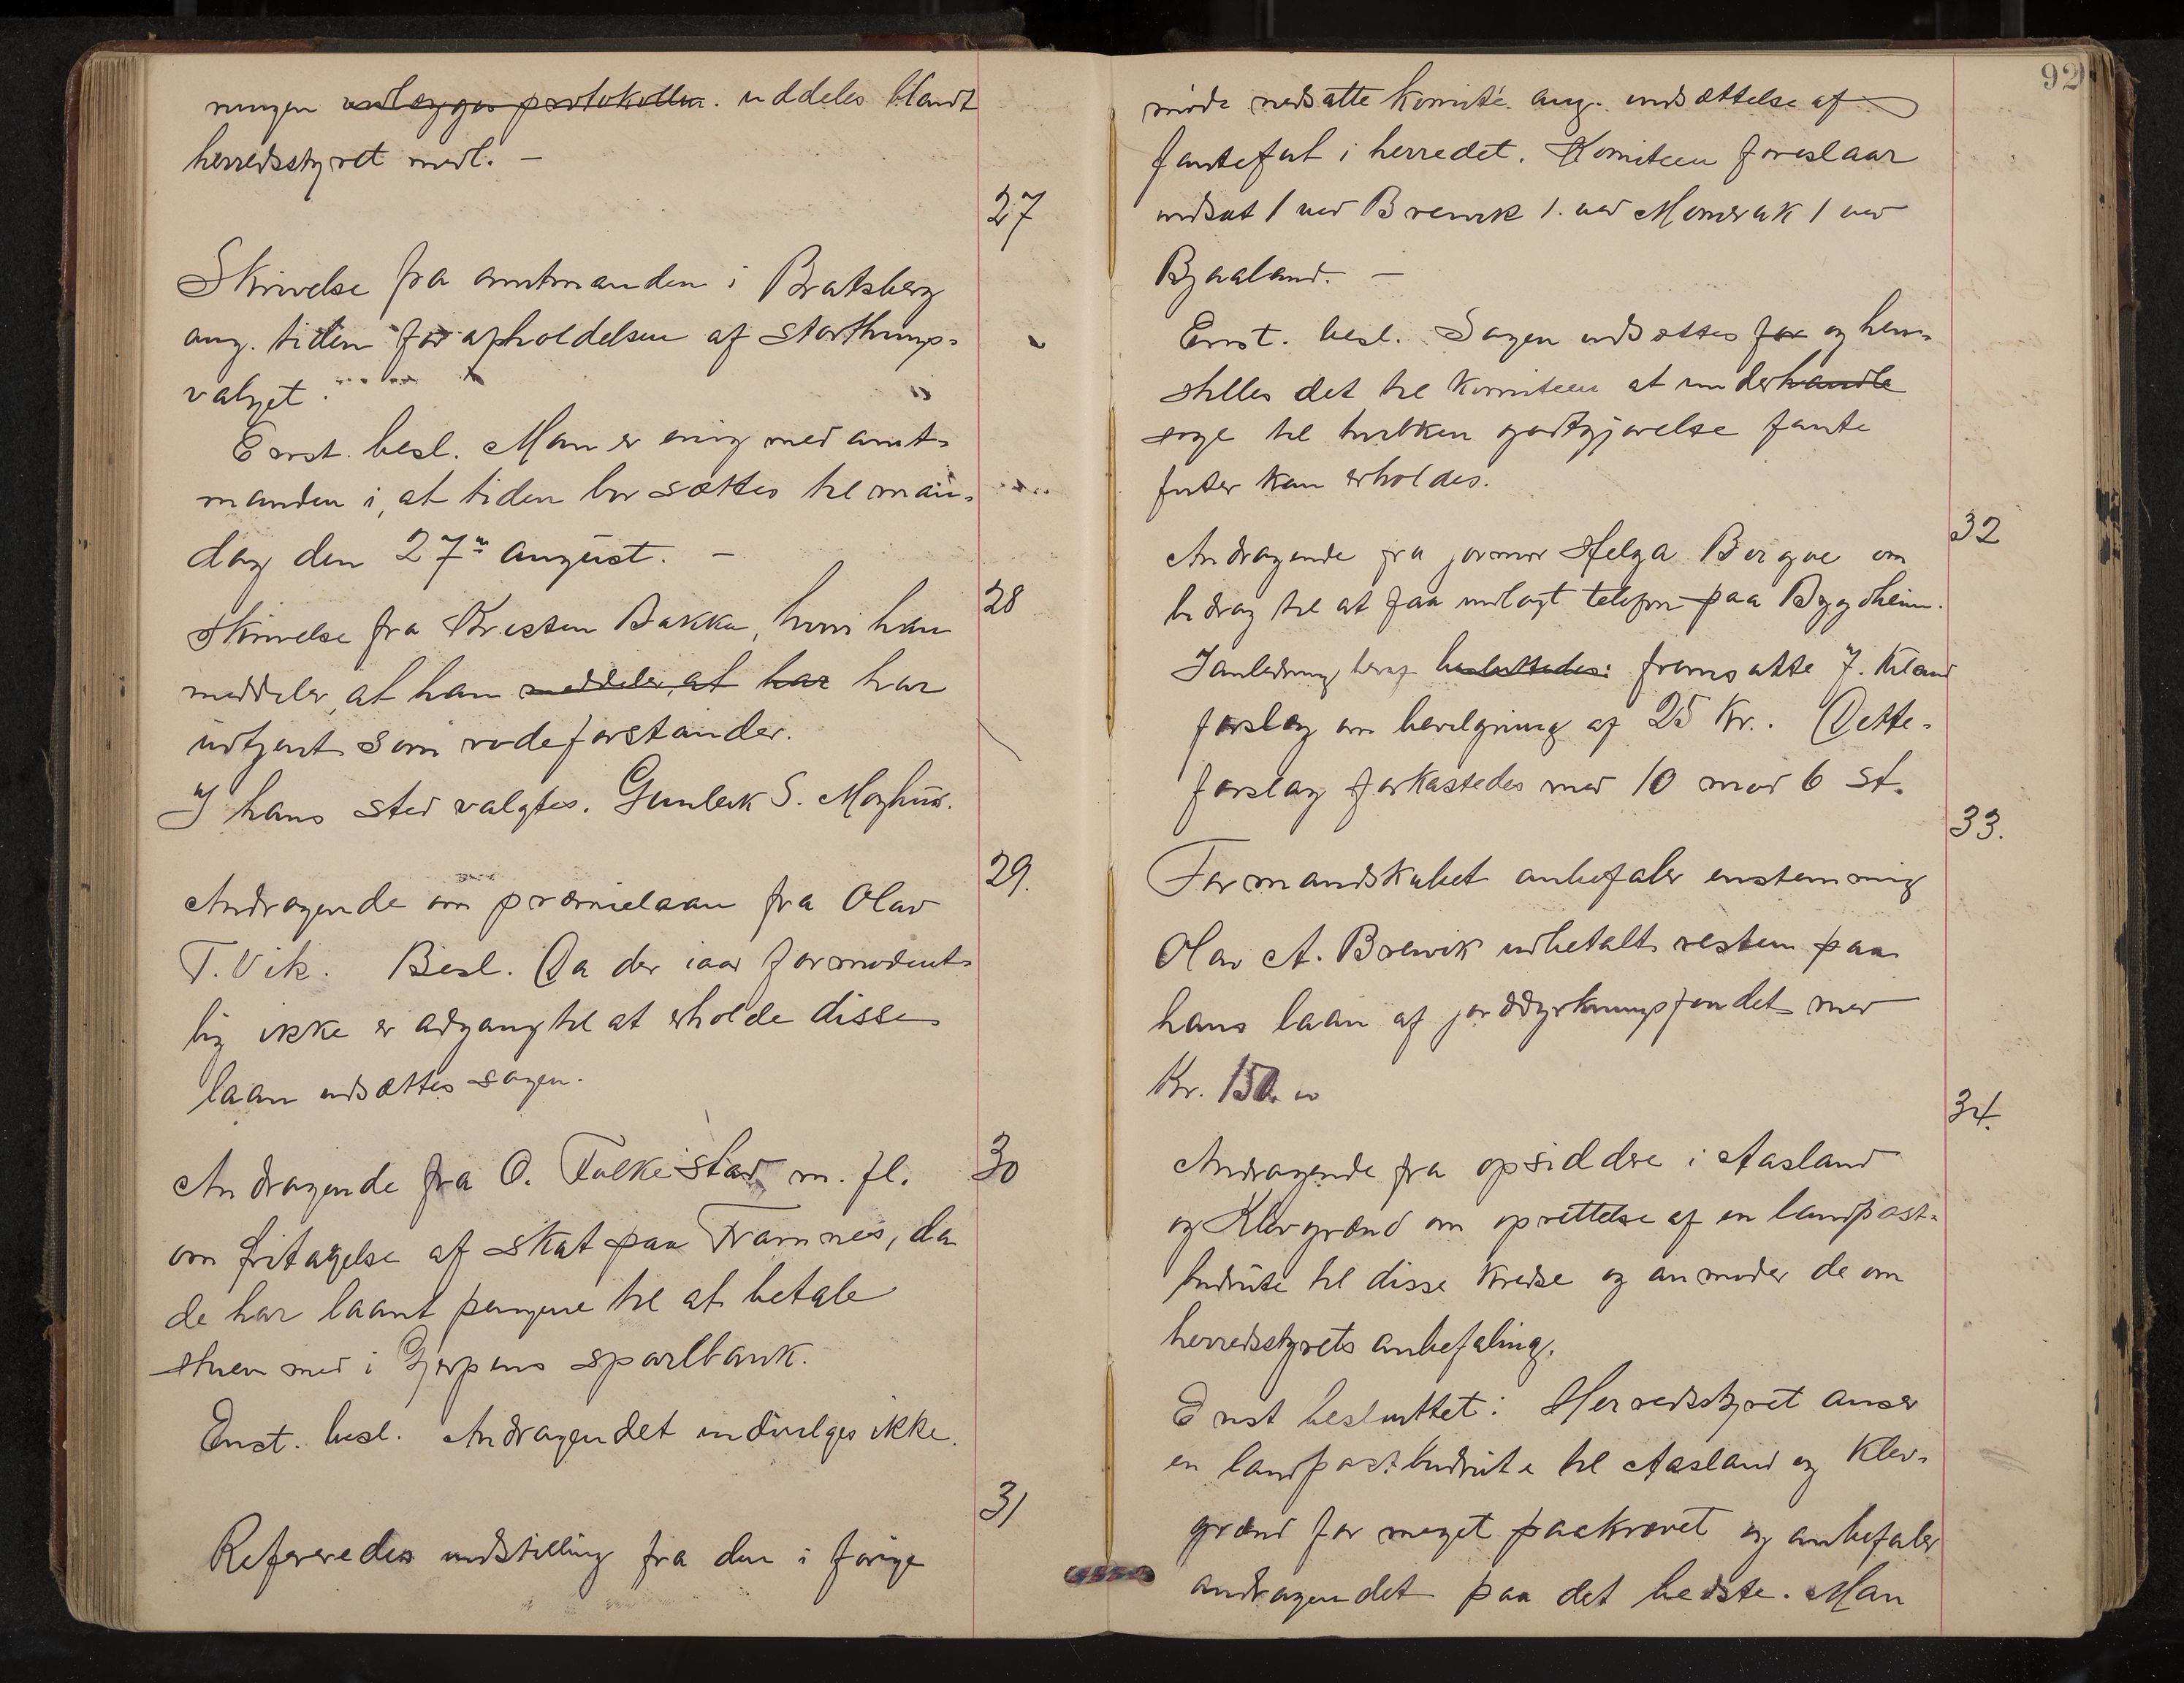 ningen vedlægges protokollen. uddeles blandt
herredsstyret medl. –
27
Skrivelse fra amtmanden i Bratsberg
ang. tiden for afholdelsen af storthings-
valget.
Enst. besl. Man er enig med amt-
manden i, at tiden bør sættes til man-
dag den 27de august. –
28
Skrivelse fra Kresten Bakka, hvori han
meddeler, at han meddeler, at har har
udtjent som rodeforstander.
I hans sted valgtes. Gunleik S. Moghus.
29.
Andragende om præmielaan fra Olav
T. Vik. Besl. Da der iaar formodent-
lig ikke er adgang til at erholde disse
laan udsættes sagen.
30
Andragende fra O. Folkestad m. fl.
om fritagelse af skat paa Framnes, da
de har laant pengene til at betale
med i Gjerpens sparebank.
Enst. besl. Andragendet indvilges ikke.
31
Refereredes indstilling fra den i forige
92
møde nedsatte komité ang. indsættelse af
fantefut i herredet. Komiteen foreslaar
indsat 1 ved Brewik 1. ved Momrak 1 ved
Bjaaland. –
Enst. besl. Sagen udsættes for og hen-
stilles det til komiteen at underhandle
søge til hvilken godtgjørelse fante
futer kan erholdes.
32
Andragende fra jormor Helga Borgoe om
bidrag til at faa indlagt telefon paa Bygdheim.
I anledning heraf besluttedes: fremsatte J. Kiland
forslag om bevilgning af 25 Kr. Dette
forslag forkastedes med 10 mod 6 st.
33.
Formandskabet anbefaler enstemmig
Olav A. Brewik udbetalt resten paa
hans laan af jorddyrkningsfondet med
Kr. 150.00
34.
Andragende fra opsiddere i Aasland
og Klevgrend om oprettelse af en landpost-
budrute til disse kredse og anmoder de om
herredsstyrets anbefaling.
Enst besluttet: Herredsstyret anser
en landpostbudrute til Aasland og Klev-
grend for meget paakrævet og anbefaler
andragendet paa det bedste. Man